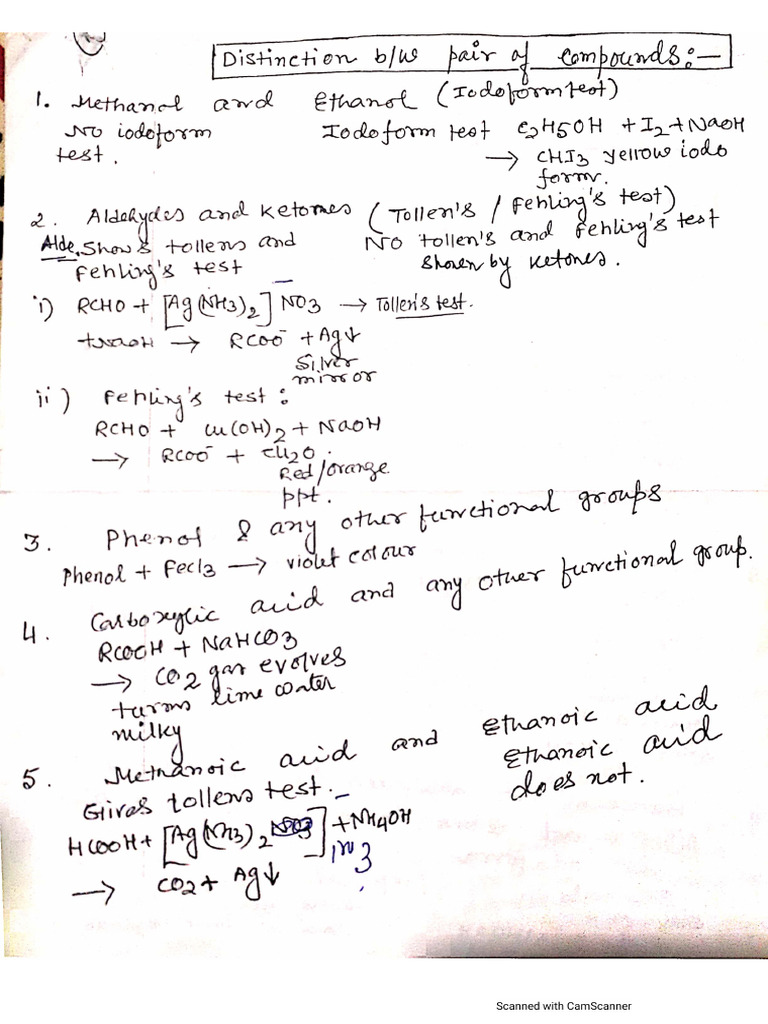 Distinction b/w pair of compounds:—
1. Methanol and Ethanol (Iodoform test)
No iodoform Iodoform test C2H5OH + I2 + NaOH
test. → CHI3 yellow iodo
form.
2. Aldehydes and Ketones (Tollen's / Fehling's test)
Alde. Shows tollens and No tollen's and Fehling's test
Fehling's test shown by ketones.
i) RCHO + [Ag(NH3)2] NO3 → Tollen's test.
+ NaOH → RCOO⁻ + Ag↓
Silver
mirror
ii) Fehling's test :
RCHO + Cu(OH)2 + NaOH
→ RCOO⁻ + Cu2O.
Red/orange
ppt.
3. Phenol & any other functional groups
Phenol + FeCl3 → violet colour
4. Carboxylic acid and any other functional group.
RCOOH + NaHCO3
→ CO2 gas evolves
turns lime water
milky
5. Methanoic acid and Ethanoic acid
Gives tollens test. Ethanoic acid
does not.
HCOOH + [Ag(NH3)2] NO3 + NH4OH
→ CO2 + Ag↓
Scanned with CamScanner